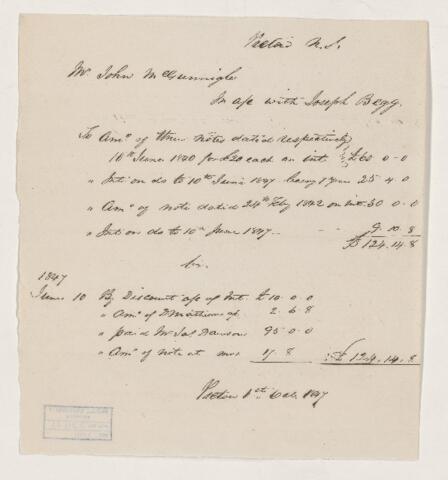 Pictou N.S.
Mr John McGunnigle
In a/c with Joseph Begg.
To Amo of three notes dated respectively
10th June 1840 for £20 each on int. £60 0-0
" Int on do to 10th June 1847 being 7 years 25 4 0
" Amo of note dated 24th Feby 1842 on int 30 0-0
" Int on do to 10th June 1847 9 10 8
£ 124.14.8
Cr.
1847
June 10 By Discount a/c of Int. £ 10-0-0
" Amo of 2.6.8
" paid Mr Jas Dawson 95.0-0
" Amo of note at mos 17 8 £ 124.14.8
Pictou 1st Octr 1847